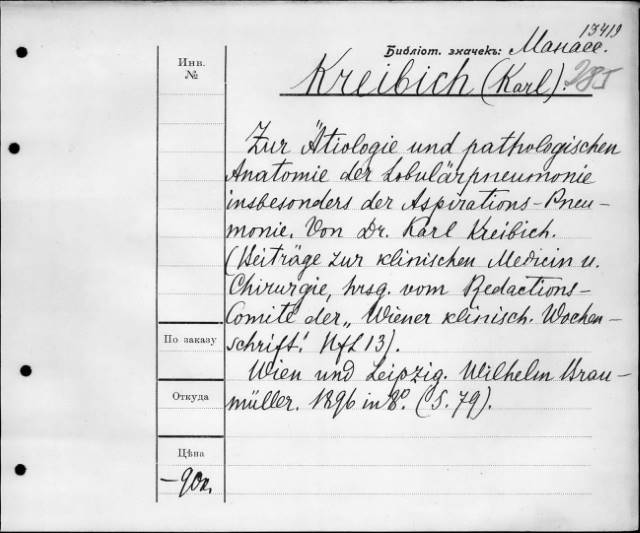 13419
Библіот. значекъ: Манассе.
Kreibich (Karl). 285
Инв. №
Zur Ätiologie und pathologischen
Anatomie der Lobulärpneumonie
insbesonders der Aspirations-Pneu-
monie. Von Dr. Karl Kreibich.
(Beiträge zur klinischen Medicin u.
Chirurgie, hrsg. vom Redactions-
Comité der „Wiener klinisch. Wochen-
По заказу
schrift." Hft 13).
Wien und Leipzig. Wilhelm Brau-
Откуда
müller. 1896 in 8º. (S. 79).
Цѣна
-90к.